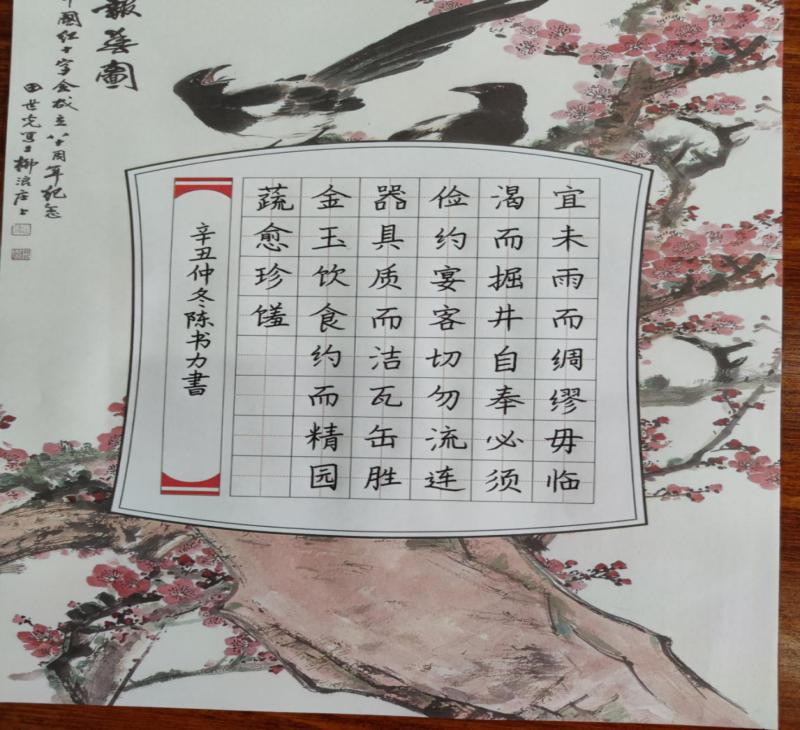 宜未雨而绸缪毋临
渴而掘井自奉必须
俭约宴客切勿流连
器具质而洁瓦缶胜
金玉饮食约而精园
蔬愈珍馐
辛丑仲冬陈书力書
報春圖
中國红十字会成立八十周年纪念
田世光写于柳浪庄上